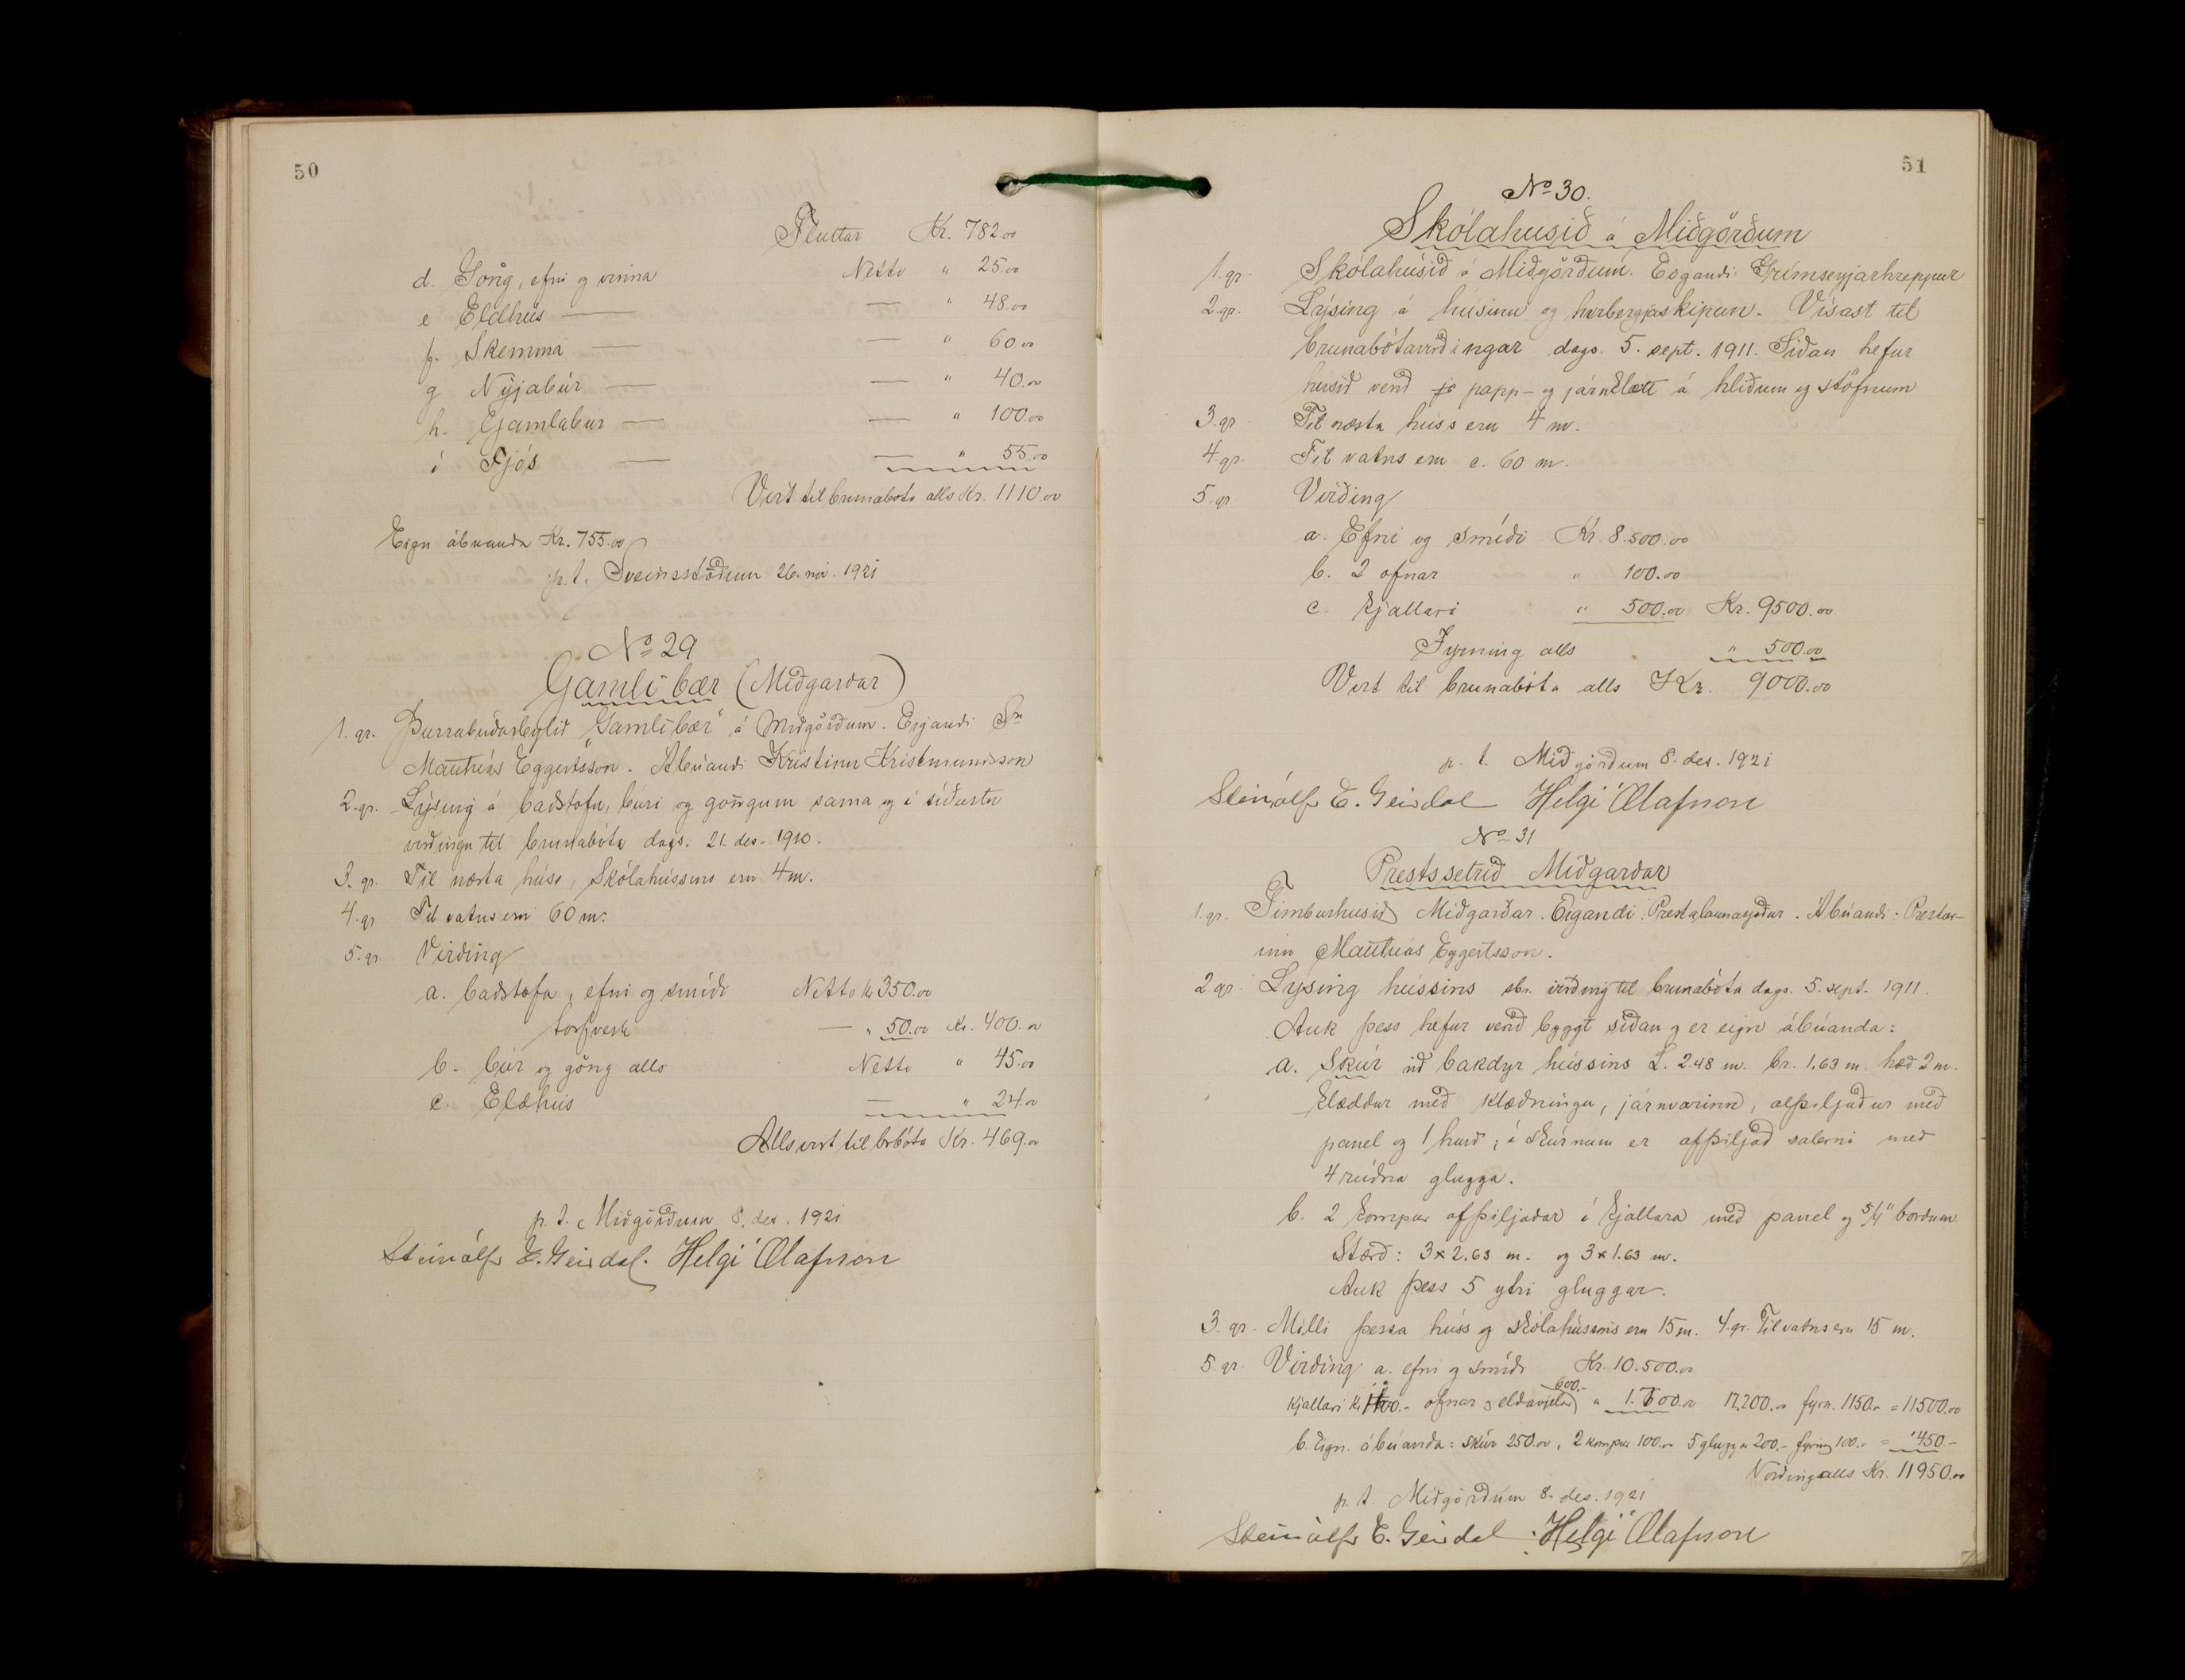 50
Fluttar Kr. 782.00
d. Göng, efni og vinna Netto " 25.00
e Eldhús — — " 48.00
f. Skemma — — " 60.00
g Nýjabúr — — " 40.00
h. Gamlabúr — — " 100.00
i Fjós — — " 55.00
Virt til brunabóta alls Kr. 1110.00
Eign ábúanda Kr. 755.00
p.t. Sveinsstöðum 26. nóv. 1921
No 29
Gamli bær (Miðgarðar)
1. gr. Þurrabúðarbýlið "Gamli bær" á Miðgörðum. Eigandi Sr.
Matthías Eggertsson. Ábúandi Kristinn Kristmundsson
2. gr. Lýsing á baðstofu, búri og göngum sama og í síðustu
virðingu til brunabóta dags. 21. des. 1910.
3. gr. Til næsta húss, Skólahússins eru 4 m.
4. gr Til vatns eru 60 m.
5. gr. Virðing
a. baðstofa, efni og smíði Netto kr 350.00
torfverk — " 50.00 Kr. 400.00
b. búr og göng alls Netto " 45.00
c. Eldhús — " 24.00
Alls virt til brbóta Kr. 469.00
p. t. Miðgörðum 8. des. 1921
Steinólfr E. Geirdal. Helgi Ólafsson
51
No 30.
Skólahúsið á Miðgörðum
1. gr. Skólahúsið á Miðgörðum. Eigandi: Grímseyjarhreppur
2. gr. Lýsing á húsinu og herbergjaskipun. Vísast til
brunabótavirðingar dags. 5. sept. 1911. Síðan hefur
húsið verið papp- og járnklætt á hliðum og stöfnum
3. gr Til næsta húss eru 4 m.
4. gr. Til vatns eru c. 60 m.
5. gr. Virðing
a. Efni og smíði Kr. 8.500.00
b. 2 ofnar " 100.00
c. kjallari " 500.00 Kr. 9500.00
Fyrning alls " 500.00
Virt til brunabóta alls Kr. 9000.00
p. t. Miðgörðum 8. des. 1921
Steinólfr E. Geirdal Helgi Ólafsson
No 31
Prestssetrið Miðgarðar
1. gr. Timburhúsið Miðgarðar. Eigandi: Prestalaunasjóður. Ábúandi: Prestur-
inn Matthías Eggertsson.
2. gr. Lýsing hússins sbr. virðing til brunabóta dags. 5. sept. 1911.
Auk þess hefur verið byggt síðan og er eign ábúanda:
a. Skúr við bakdyr hússins L. 2.48 m. br. 1.63 m. hæð 2 m.
klæddur með klæðningu, járnvarinn, alþiljaður með
panel og 1 hurð; í skúrnum er afþiljað salerni með
4 rúðna glugga.
b. 2 kompur afþiljaðar í kjallara með panel og 5/4" borðum
Stærð: 3 x 2.63 m. og 3 x 1.63 m.
Auk þess 5 ytri gluggar.
3. gr. Milli þessa húss og skólahússins eru 15 m. 4. gr. Til vatns eru 15 m.
5. gr. Virðing a. efni og smíði Kr. 10.500.00
600.-
kjallari kr ofnar og eldavjelar " 12,200.00 fyrn. 1150.00 = 11500.00
b. Eign. ábúanda: skúr 250.00, 2 kompur 100.00 5 gluggar 200.- fyrning 100.- = 450.-
Virðing alls Kr. 11950.00
p. t. Miðgörðum 8. des. 1921
Steinólfr E. Geirdal Helgi Ólafsson